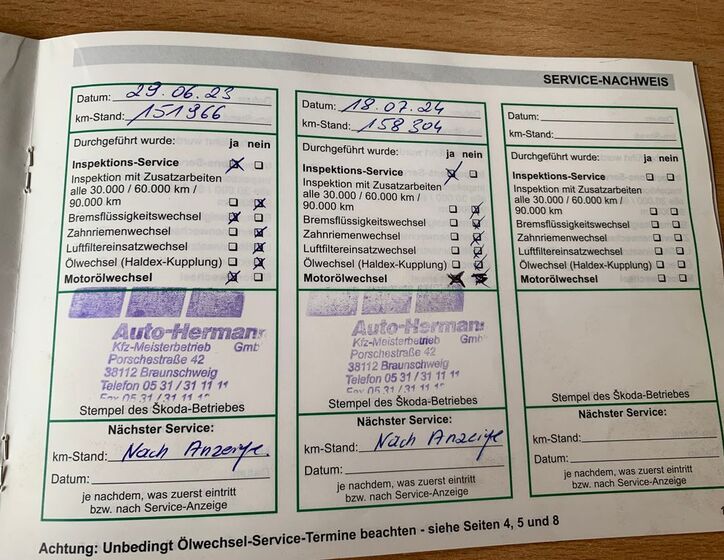 SERVICE-NACHWEIS
Datum: 29.06.23
km-Stand: 151966
Durchgeführt wurde: ja nein
Inspektions-Service
Inspektion mit Zusatzarbeiten
alle 30.000 / 60.000 km /
90.000 km
Bremsflüssigkeitswechsel
Zahnriemenwechsel
Luftfiltereinsatzwechsel
Ölwechsel (Haldex-Kupplung)
Motorölwechsel
Auto-Herman
Kfz-Meisterbetrieb Gmb
Porschestraße 42
38112 Braunschweig
Telefon 05 31 / 31 11 11
Fax 05 31 / 31 11
Stempel des Škoda-Betriebes
Nächster Service:
km-Stand: Nach Anzeige
Datum:
je nachdem, was zuerst eintritt
bzw. nach Service-Anzeige
Datum: 18.07.24
km-Stand: 158304
Durchgeführt wurde: ja nein
Inspektions-Service
Inspektion mit Zusatzarbeiten
alle 30.000 / 60.000 km /
90.000 km
Bremsflüssigkeitswechsel
Zahnriemenwechsel
Luftfiltereinsatzwechsel
Ölwechsel (Haldex-Kupplung)
Motorölwechsel
Auto-Herman
Kfz-Meisterbetrieb Gmb
Porschestraße 42
38112 Braunschweig
Telefon 05 31 / 31 11 11
Stempel des Škoda-Betriebes
Nächster Service:
km-Stand: Nach Anzeige
Datum:
je nachdem, was zuerst eintritt
bzw. nach Service-Anzeige
Datum:
km-Stand:
Durchgeführt wurde: ja nein
Inspektions-Service
Inspektion mit Zusatzarbeiten
alle 30.000 / 60.000 km /
90.000 km
Bremsflüssigkeitswechsel
Zahnriemenwechsel
Luftfiltereinsatzwechsel
Ölwechsel (Haldex-Kupplung)
Motorölwechsel
Stempel des Škoda-Betriebes
Nächster Service:
km-Stand:
Datum:
je nachdem, was zuerst eintritt
bzw. nach Service-Anzeige
Achtung: Unbedingt Ölwechsel-Service-Termine beachten - siehe Seiten 4, 5 und 8